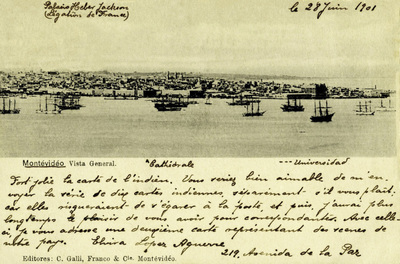 Palacio Heber Jackson
(Légation de France)
le 28 Juin 1901
Montevidéo, Vista General.
Cathédrale
Universidad
Fort jolie la carte de l'indien. Vous seriez bien aimable de m'en-
voyer la série de dix cartes indiennes, séparément s'il vous plait,
car elles risqueraient de s'égarer à la poste, et puis, j'aurai plus
longtemps le plaisir de vous avoir pour correspondante. Avec celle-
ci, je vous adresse une deuxième carte représentant des scènes de
notre pays. Elvira Lopez
219, Avenida de la Paz
Editores: C. Galli, Franco & Cía. Montevidéo.